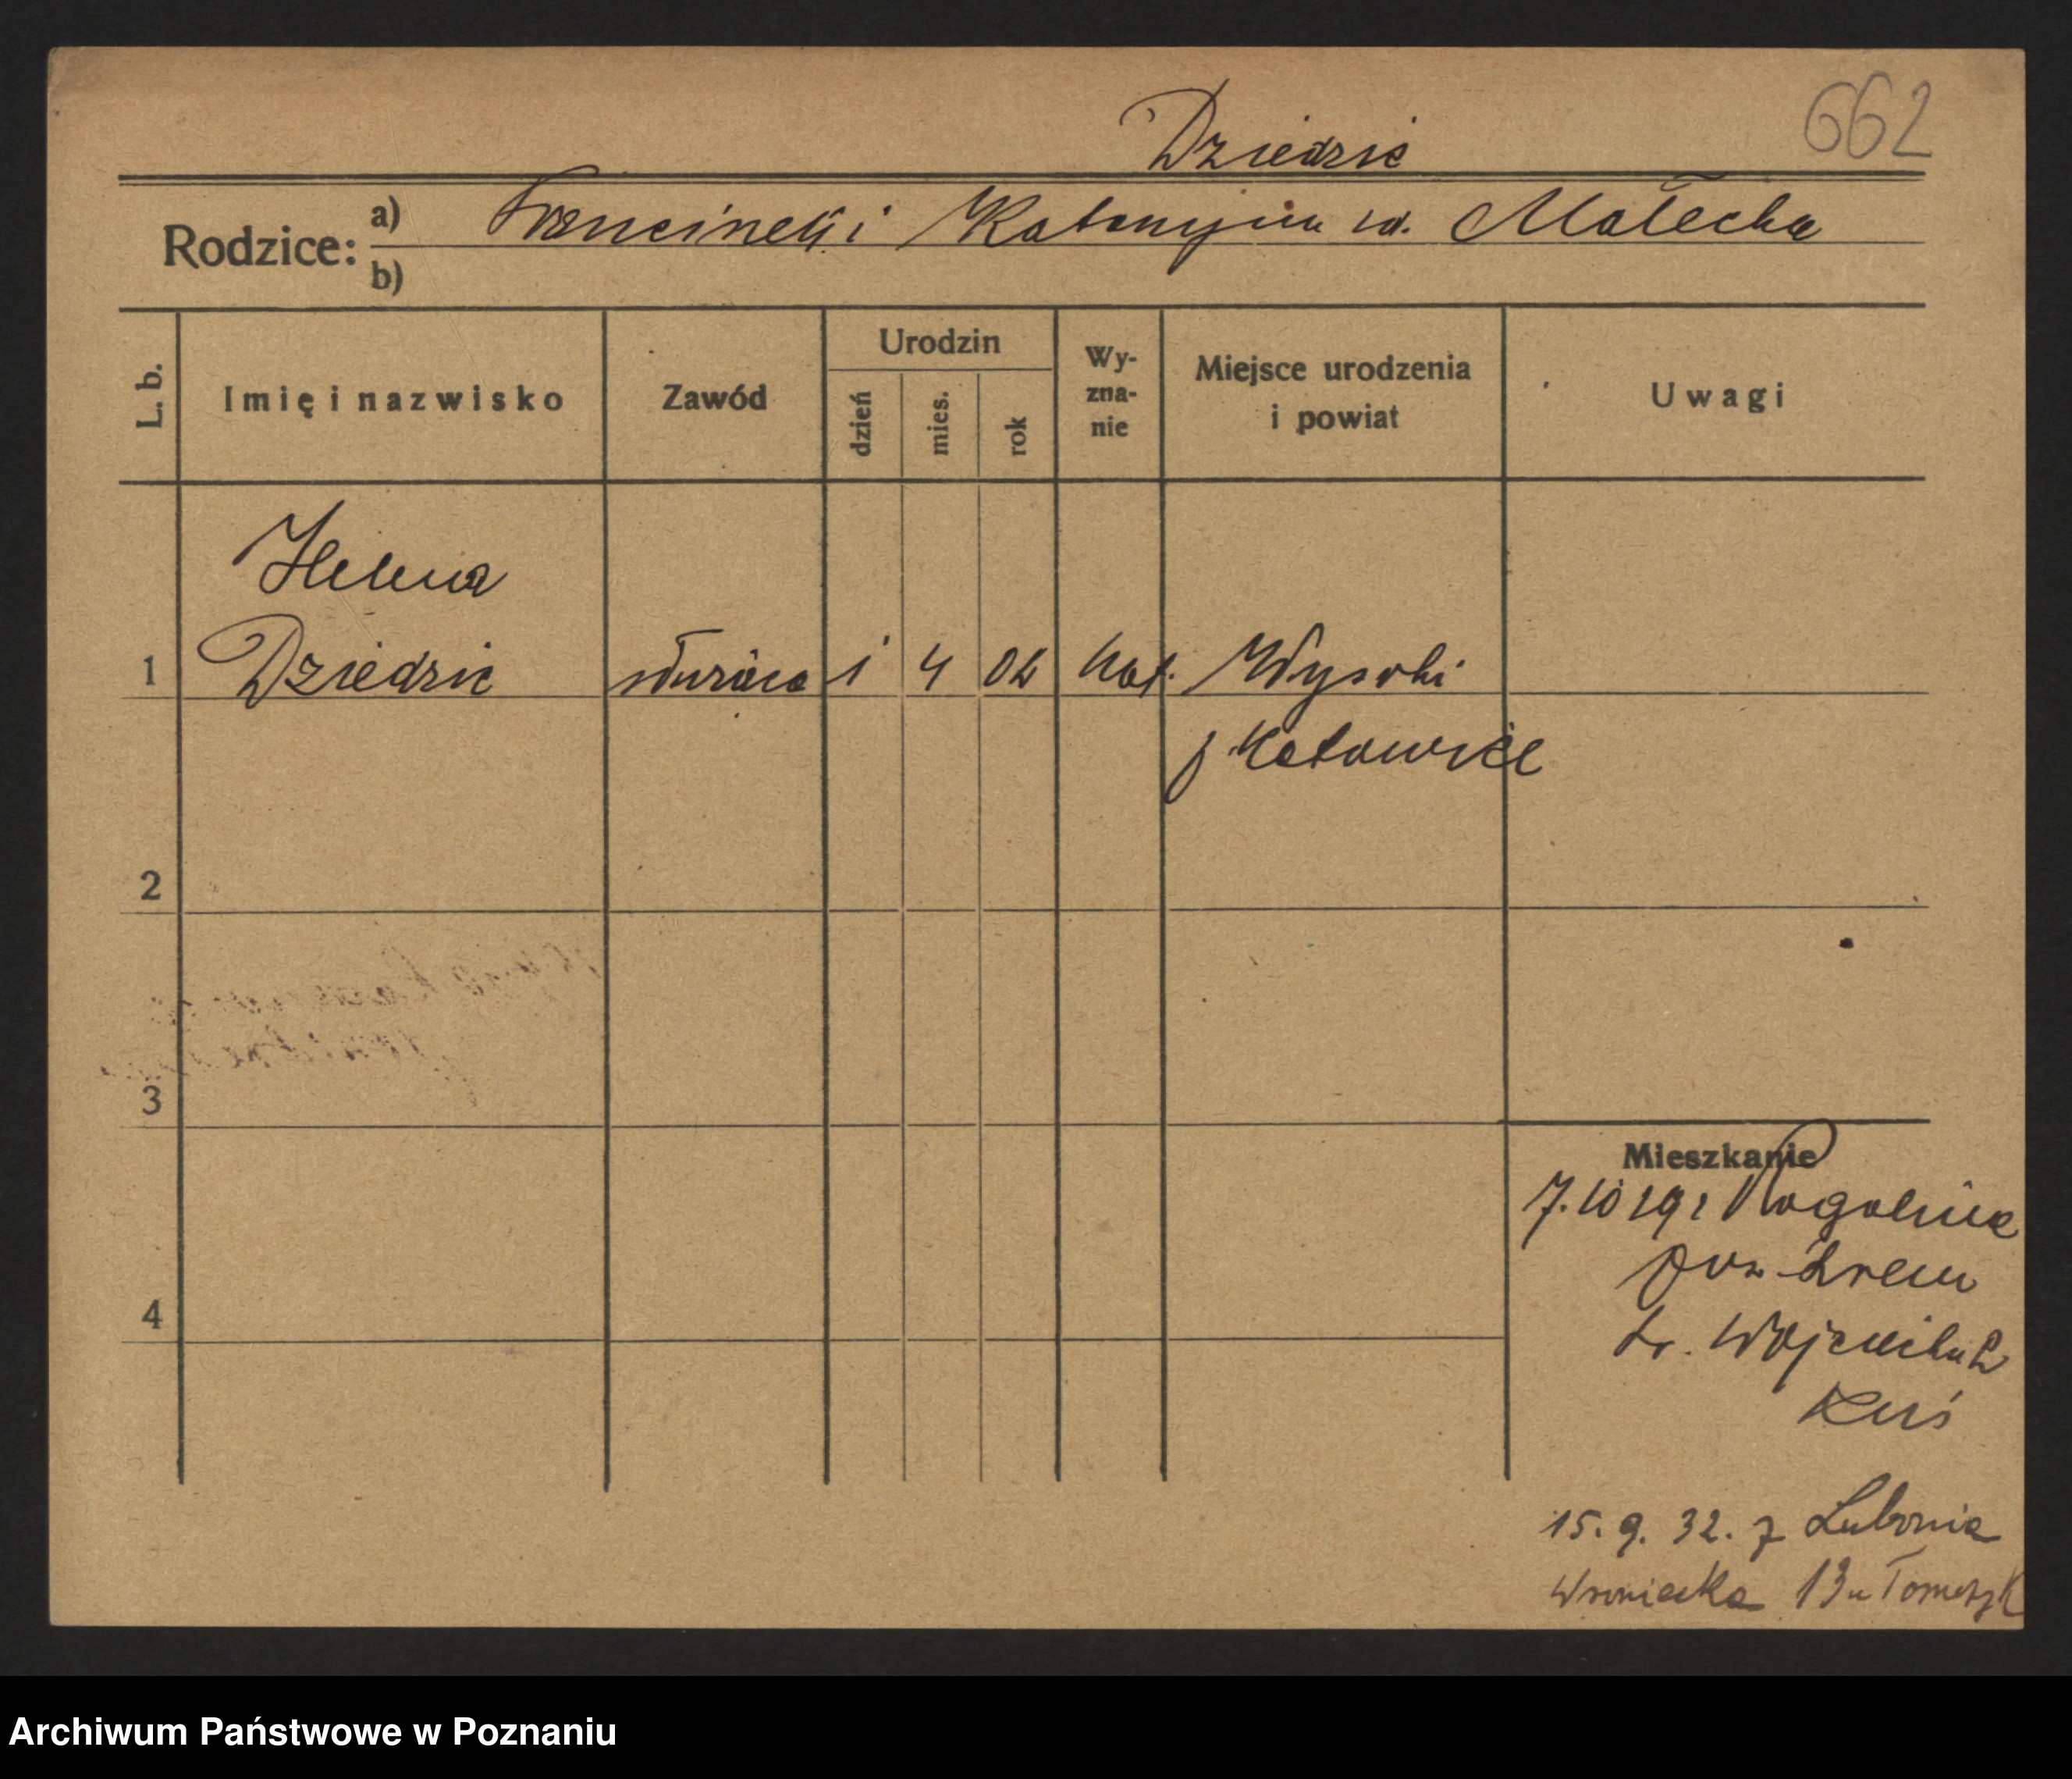 662
Dziedzic
Rodzice: a) Franciszek i Katarzyna ur. Małecka
b)
L. b. Imię i nazwisko Zawód Urodzin dzień mies. rok Wy-zna-nie Miejsce urodzenia i powiat Uwagi
Helena
1 Dziedzic służąca 1 4 02 kat. Wysoki
p Katowice
2
3
4
Mieszkanie
7. 10 29 z Rogalina
pow. Śrem
Wojciech
Kuś
15. 9. 32. z Lubonia
Wroniecka 13 u Tomczyk
Archiwum Państwowe w Poznaniu